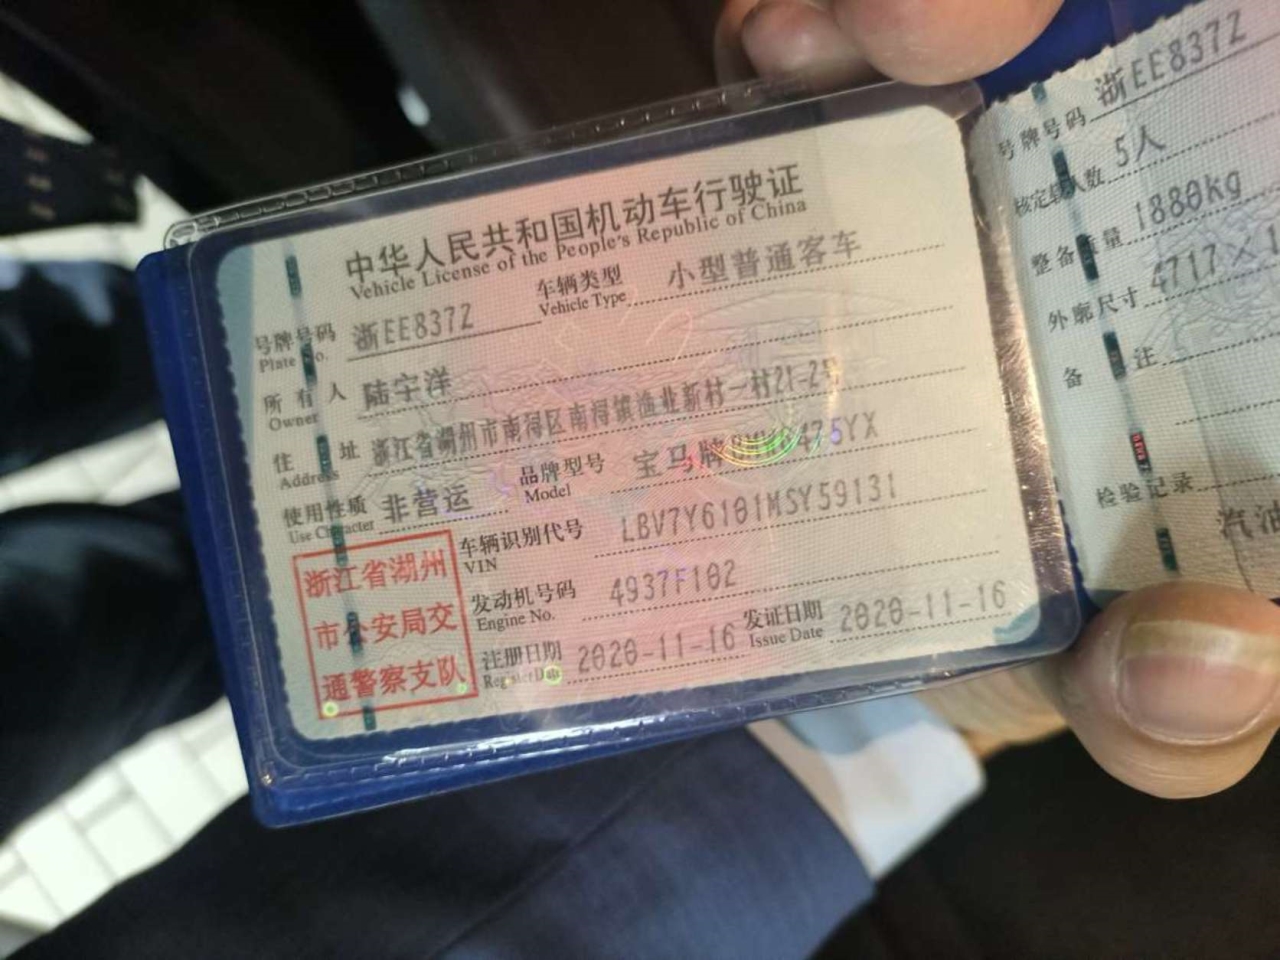 中华人民共和国机动车行驶证
Vehicle License of the People's Republic of China
号牌号码 浙EE837Z 车辆类型 小型普通客车
Plate No. Vehicle Type
所有人 陆宇洋
Owner
住址 浙江省湖州市南浔区南浔镇渔业新村一村21-2号
Address
使用性质 非营运 品牌型号 宝马牌
Use Character Model
车辆识别代号 LBV7Y6101MSY59131
VIN
发动机号码 4937F102
Engine No.
注册日期 2020-11-16 发证日期 2020-11-16
Register Date Issue Date
浙江省湖州
市公安局交
通警察支队
号牌号码 浙EE837Z
核定载人数 5人
整备质量 1880kg
外廓尺寸 4717×1
备注
检验记录
汽油